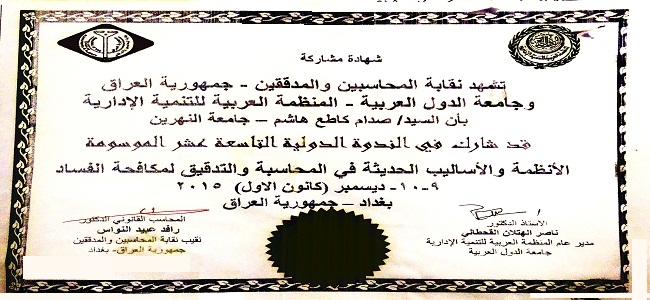 شهادة مشاركة
تشهد نقابة المحاسبين والمدققين - جمهورية العراق
وجامعة الدول العربية - المنظمة العربية للتنمية الإدارية
بأن السيد/ صدام كاطع هاشم – جامعة النهرين
قد شارك في الندوة الدولية التاسعة عشر الموسومة
الأنظمة والأساليب الحديثة في المحاسبة والتدقيق لمكافحة الفساد
٩-١٠ ديسمبر (كانون الاول) ٢٠١٥
بغداد – جمهورية العراق
الأستاذ الدكتور
ناصر الهتلان القحطاني
مدير عام المنظمة العربية للتنمية الإدارية
جامعة الدول العربية
المحاسب القانوني الدكتور
رافد عبيد النواس
نقيب نقابة المحاسبين والمدققين
جمهورية العراق- بغداد